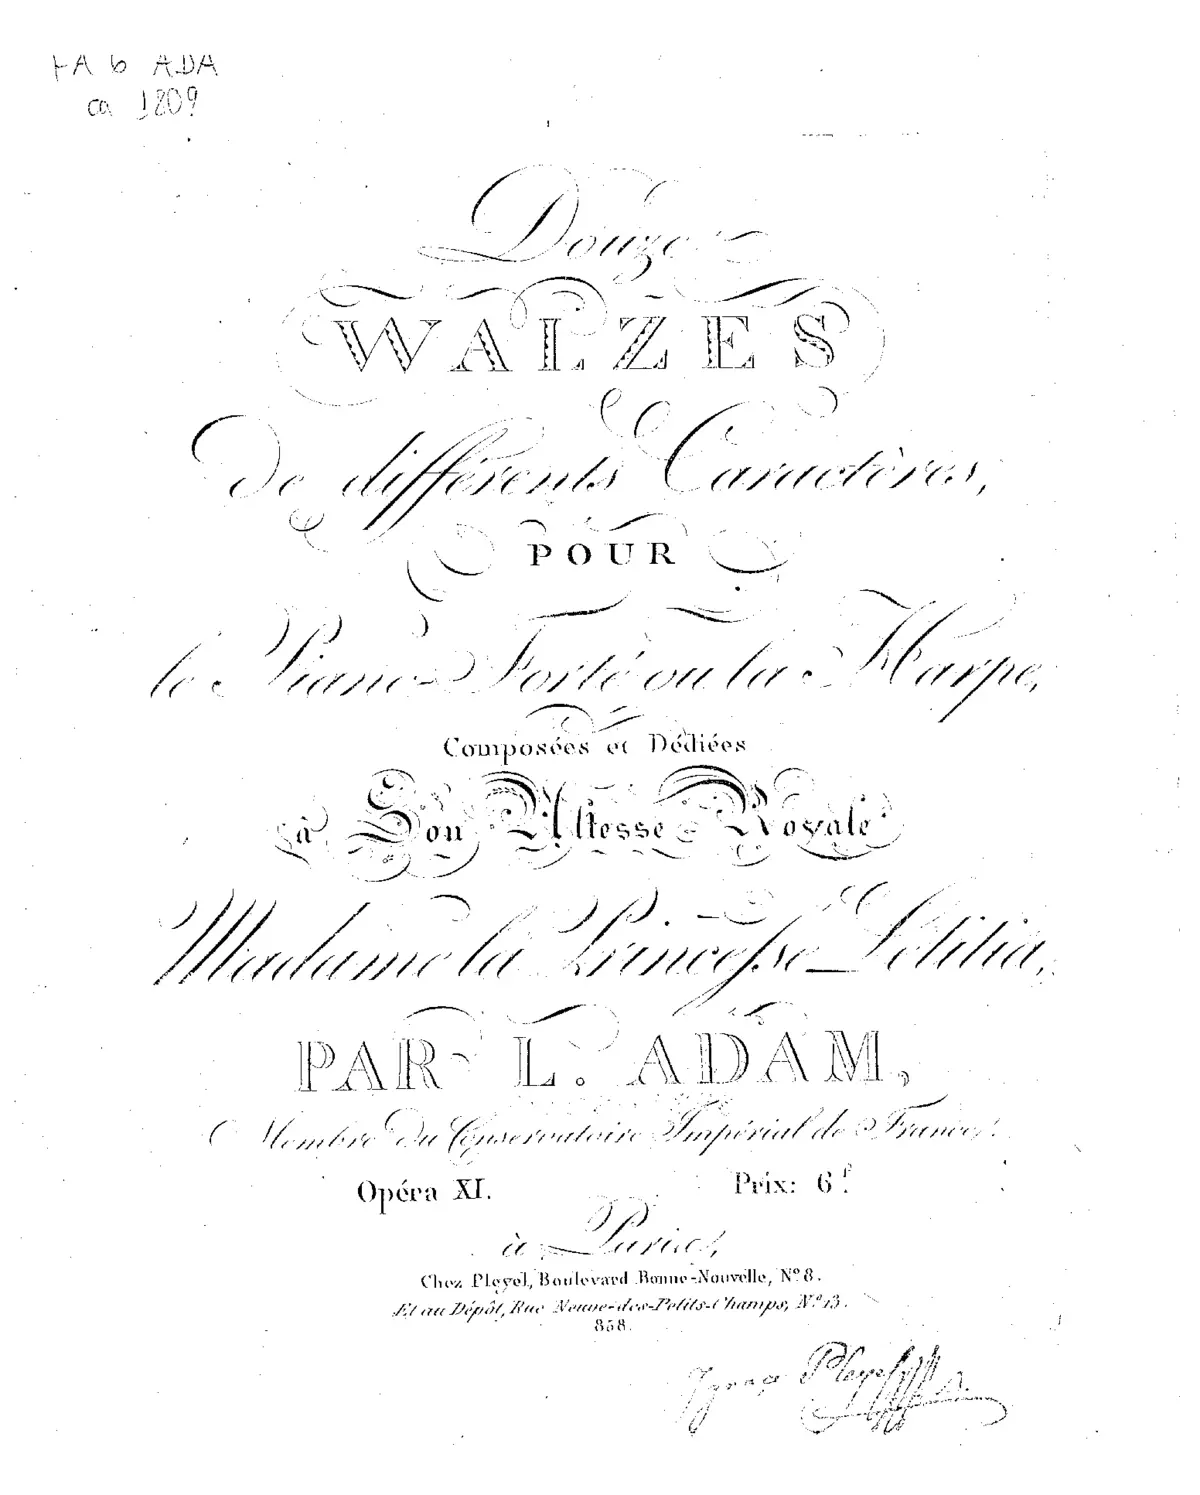 FA b ADA
ca 1809
Douze
WALZES
De différents Caractères,
POUR
le Piano-Forté ou la Harpe,
Composées et Dédiées
à Son Altesse Royale
Madame la Princesse Létitia,
PAR L. ADAM,
Membre du Conservatoire Impérial de France.
Opéra XI. Prix: 6f.
à Paris,
Chez Pleyel, Boulevard Bonne-Nouvelle, No 8.
Et au Dépôt, Rue Neuve-des-Petits-Champs, No 13.
858.
Ignace Pleyel